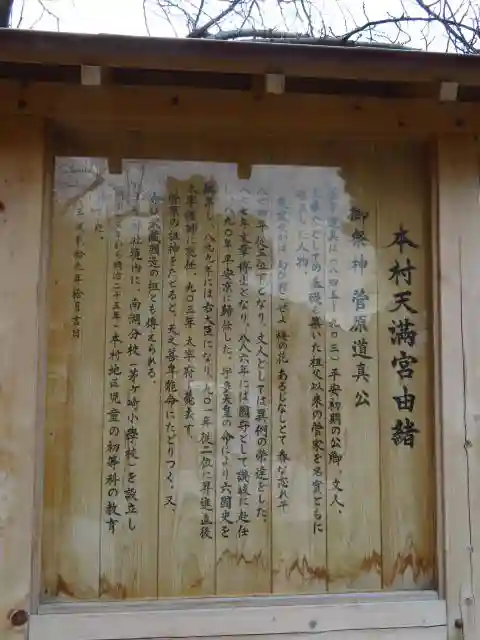 本村天満宮由緒
御祭神 菅原道真公
菅原道真は(八四五〜九〇三)平安初期の公卿、文人、
文章への としての基礎を築いた祖父以来の菅家を名実ともに
した人物。
東風吹かば 匂ひおこせよ 梅の花 あるじなしとて 春な忘れそ
八七四年従五位下となり、文人としては異例の栄達をした。
八七七年文章博士となり、八八六年には國守として讃岐に赴任
し、八九〇年平安京に帰任した。宇多天皇の命により六國史を
編集し、八九九年には右大臣になり、九〇一年従二位に昇進直後
太宰権帥に左任、九〇三年太宰府で薨去す。
菅原の祖神をたどると、天之菩卑能命にたどりつく。又、
武蔵國造の祖とも傳えられる。
神社境内に、南湖分校(茅ヶ崎小學校)を設立し
から明治二十五年)本村地区児童の初等科の教育
した。
平成拾九年拾月吉日